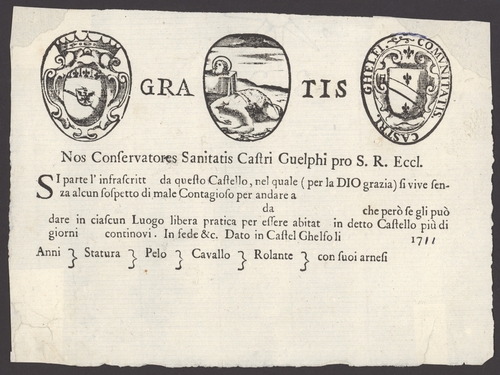 GRA TIS
CASTRI GHELFI. COMVNITATIS
Nos Conservatores Sanitatis Castri Guelphi pro S. R. Eccl.
SI parte l' infrascritt da questo Castello, nel quale ( per la DIO grazia) si vive sen-
za alcun sospetto di male Contagioso per andare a
da che però se gli può
dare in ciascun Luogo libera pratica per essere abitat in detto Castello più di
giorni continovi. In fede &c. Dato in Castel Ghelfo li 1711
Anni } Statura } Pelo } Cavallo } Rolante } con suoi arnesi